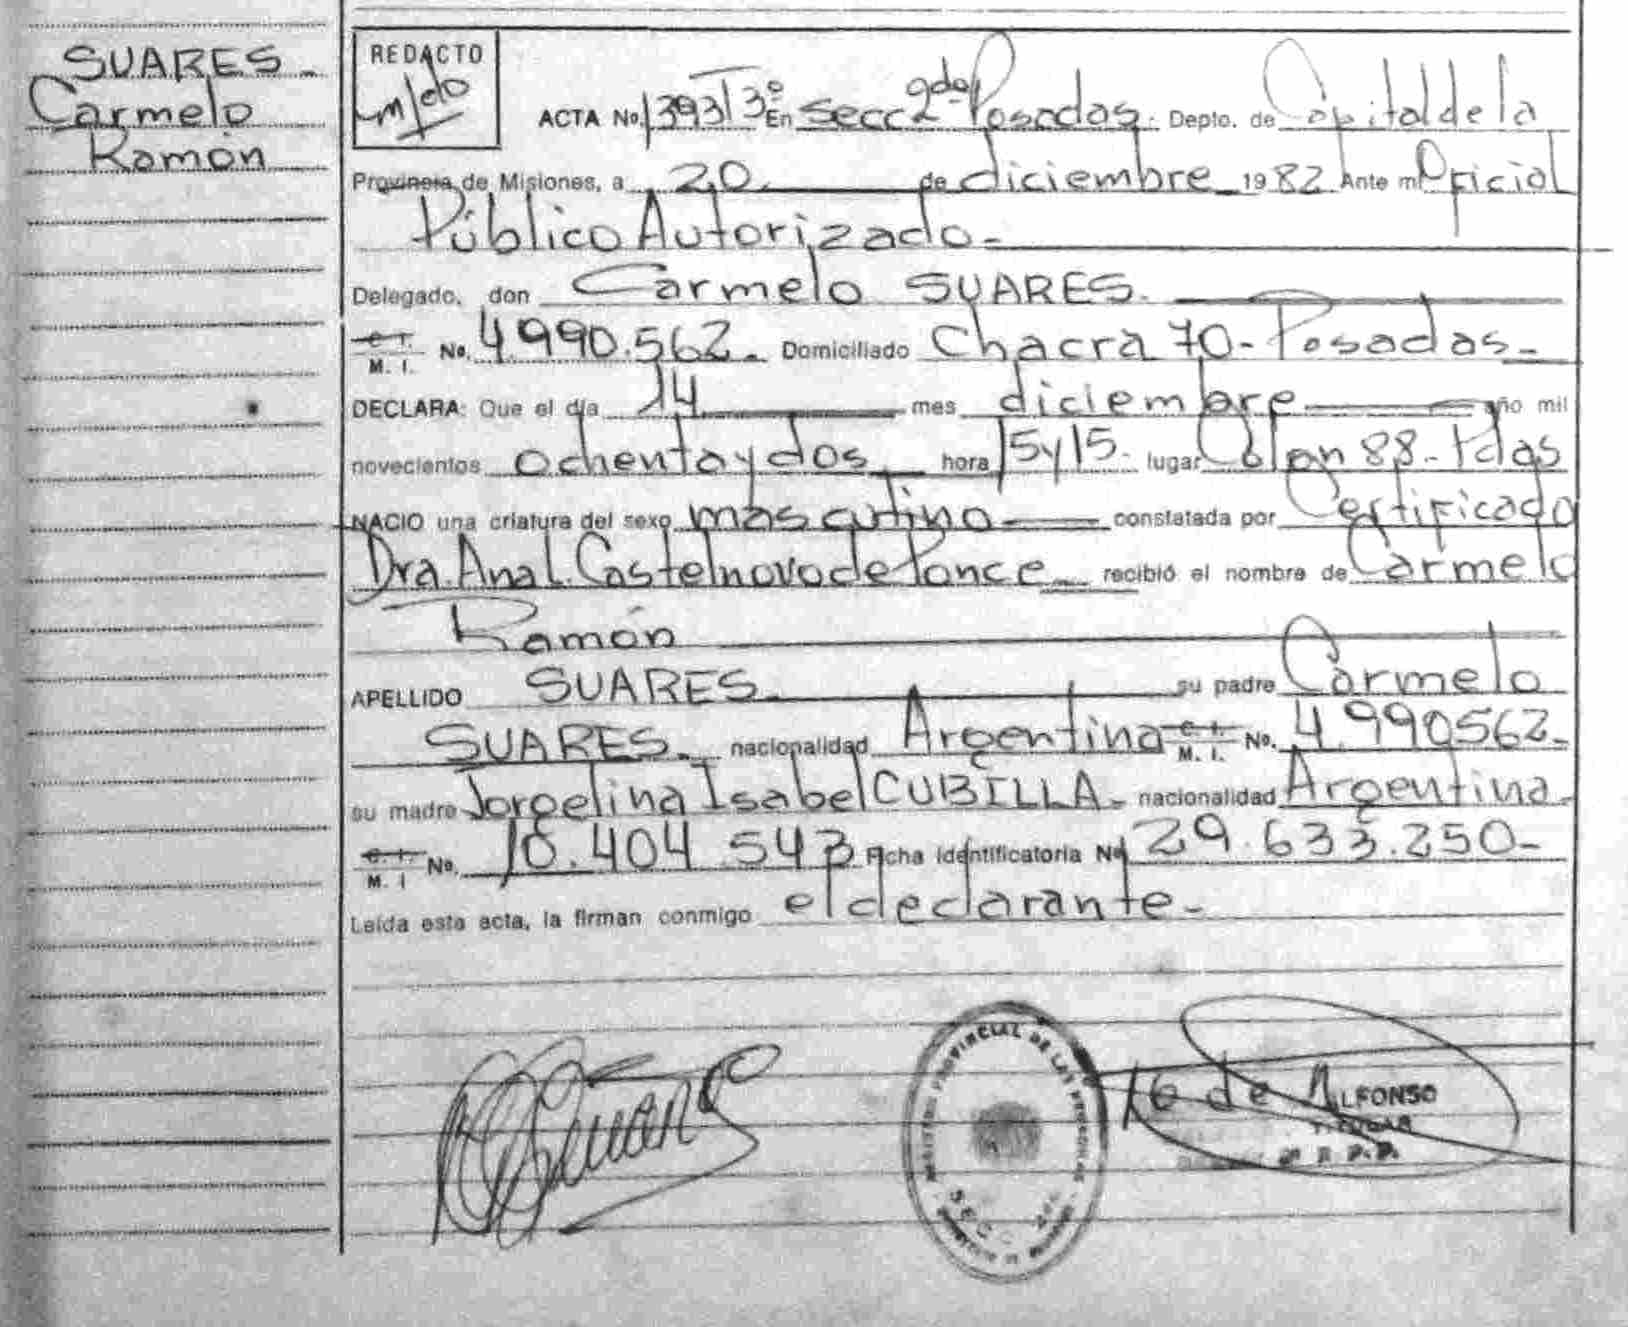 SUARES -
Carmelo
Ramón
REDACTO
ACTA No. 1393 T 3º En Secc 2da Posadas. Depto. de Capital de la
Provincia de Misiones, a 20 de diciembre 1982 Ante mi Oficial
Público Autorizado -
Delegado, don Carmelo SUARES.
C. I. M. I. No. 4990.562. Domiciliado Chacra 70 - Posadas -
DECLARA: Que el día 14 mes diciembre año mil
novecientos ochenta y dos hora 15 y 15. lugar Colon 88 - Pdas
NACIO una criatura del sexo masculino constatada por Certificado
Dra. Ana L. Castelnovo de Ponce recibió el nombre de Carmelo
Ramón
APELLIDO SUARES su padre Carmelo
SUARES. nacionalidad Argentina C. I. M. I. No. 4.990562-
su madre Jorgelina Isabel CUBILLA - nacionalidad Argentina -
C. I. M. I No. 10.404.543 Ficha Identificatoria No 29.633.250-
Leída esta acta, la firman conmigo el declarante -
PROVINCIAL DE LAS PERSONAS
SECC
de ALFONSO
TITULAR